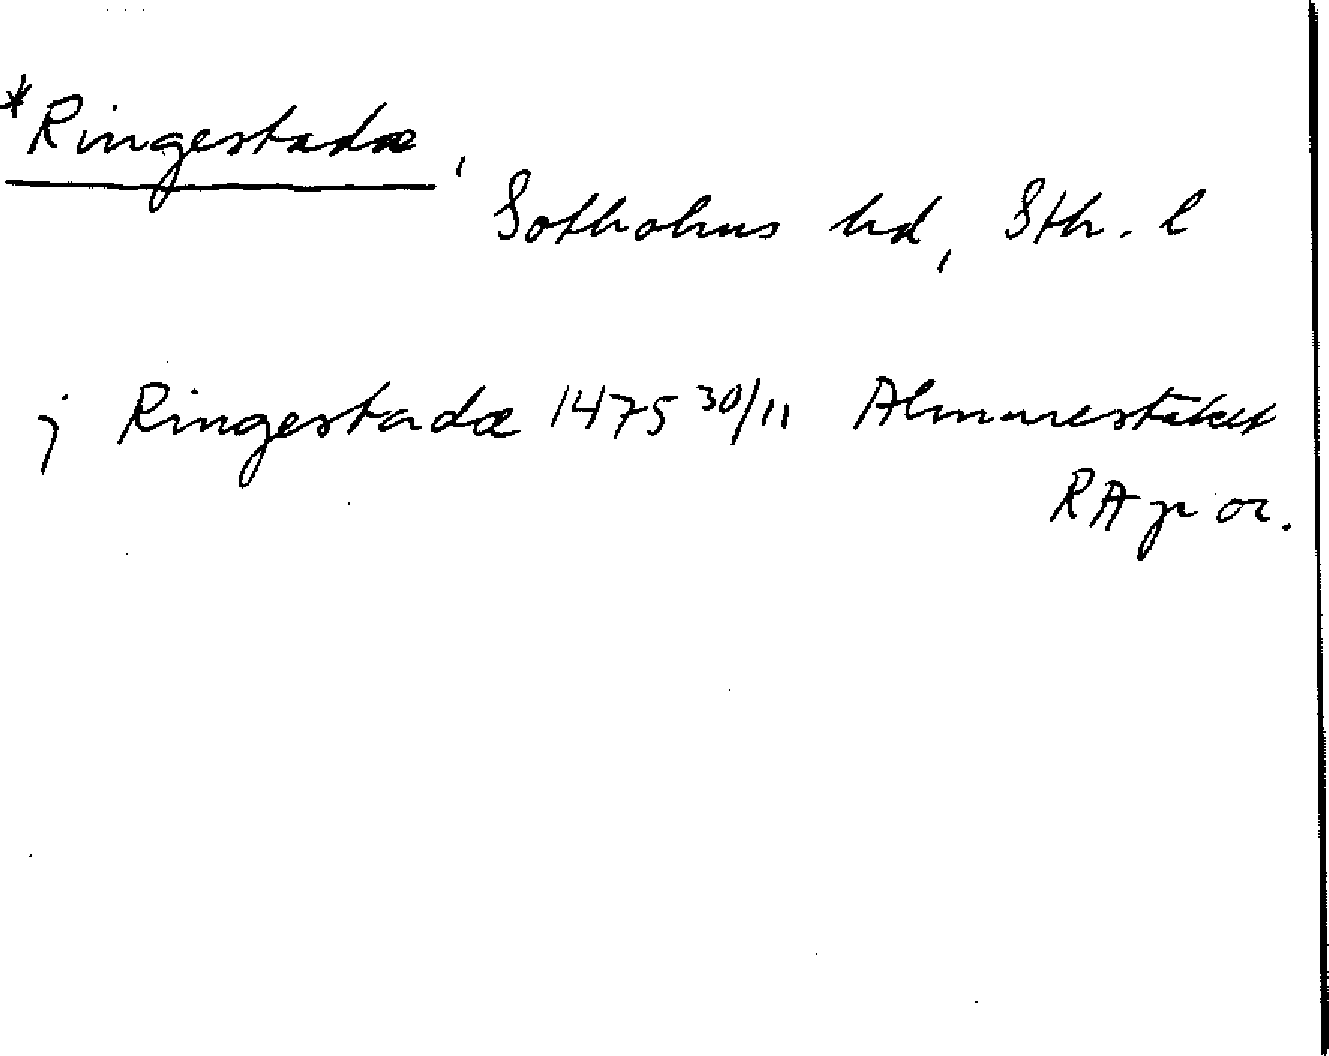 *Ringestadæ,
Sotholms hd, Sth. l
j Ringestadæ 1475 30/11 Almarestäket
RA p or.